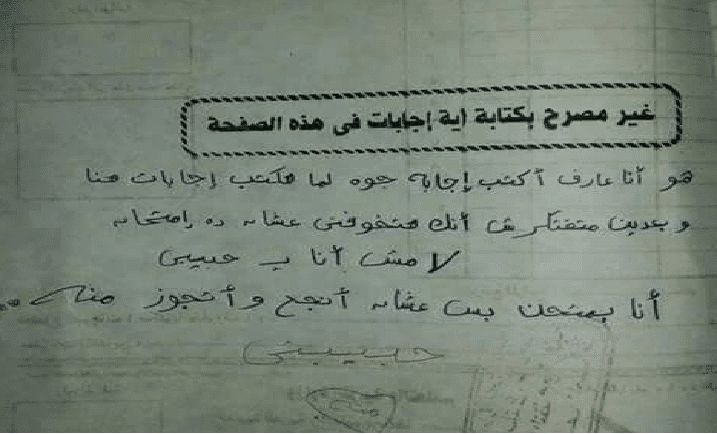 غير مصرح بكتابة أية إجابات فى هذه الصفحة
هو أنا عارف أكتب إجابة جوه لما هكتب إجابات هنا
وبعدين متفتكرش أنك هتخوفنى عشان ده إمتحان
لا مش أنا يـ حبيبى
أنا بمتحن بس عشان أنجح وأتجوز منه ..
حبيبتى
منه